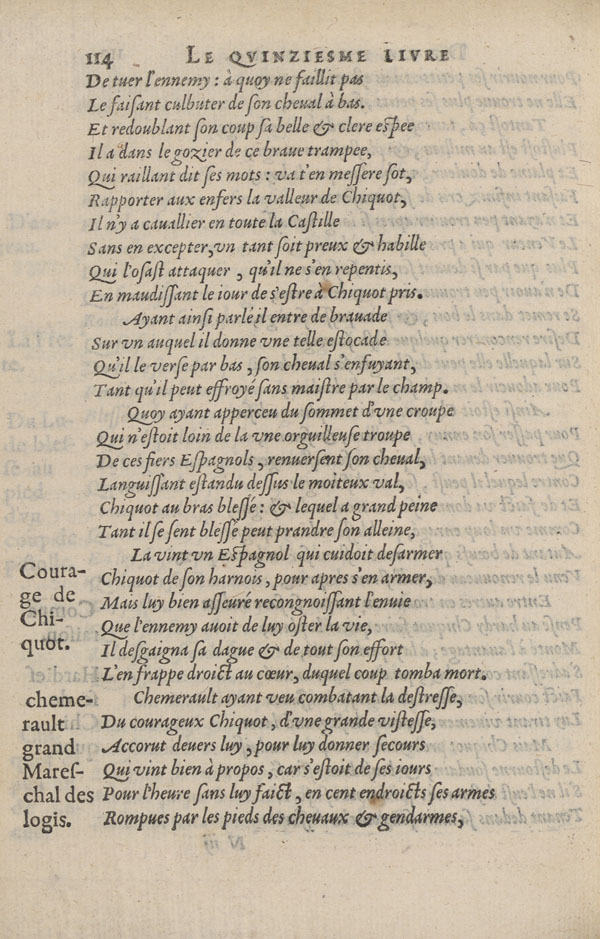 114 LE QVINZIESME LIVRE
De tuer l'ennemy : à quoy ne faillit pas
Le faisant culbuter de son cheval à bas.
Et redoublant son coup sa belle & clere espee
Il a dans le gozier de ce braue trampee,
Qui raillant dit ses mots : va t'en messere sot,
Rapporter aux enfers la valleur de Chiquot,
Il n'y a cauallier en toute la Castille
Sans en excepter, vn tant soit preux & habille
Qui l'osast attaquer , qu'il ne s'en repentis,
En maudissant le iour de s'estre à Chiquot pris.
Ayant ainsi parlé il entre de brauade
Sur vn auquel il donne vne telle estocade
Qu'il le verse par bas , son cheval s'enfuyant,
Tant qu'il peut effroyé sans maistre par le champ.
Quoy ayant apperceu du sommet d'vne croupe
Qui n'estoit loin de la vne orguilleuse troupe
De ces fiers Espagnols , renuersent son cheval,
Languissant estandu dessus le moiteux val,
Chiquot au bras blessé : & lequel a grand peine
Tant il se sent blessé peut prandre son alleine,
La vint vn Espagnol qui cuidoit desarmer
Chiquot de son harnois , pour apres s'en armer,
Mais luy bien asseuré recongnoissant l'enuie
Que l'ennemy auoit de luy oster la vie,
Il desgaigna sa dague & de tout son effort
L'en frappe droict au cœur, duquel coup tomba mort.
Chemerault ayant veu combatant la destresse,
Du courageux Chiquot, d'vne grande vistesse,
Accorut deuers luy , pour luy donner secours
Qui vint bien à propos , car s'estoit de ses iours
Pour l'heure sans luy faict , en cent endroicts ses armes
Rompues par les pieds des cheuaux & gendarmes,
Coura-
ge de
Chi-
quot.
cheme-
rault
grand
Mares-
chal des
logis.